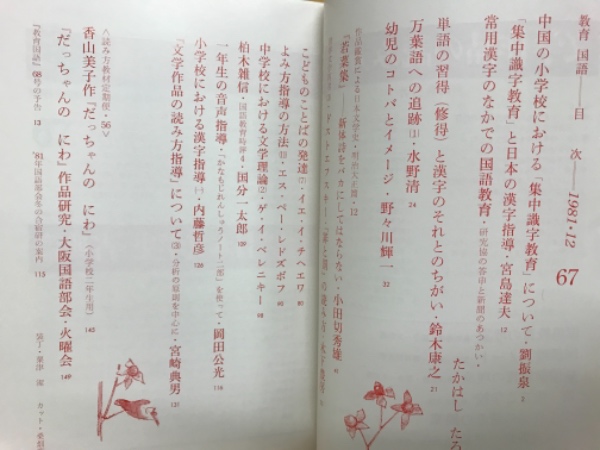 教育 国語——目 次——1981・12
67
中国の小学校における「集中識字教育」について・劉振泉 2
「集中識字教育」と日本の漢字指導・宮島達夫 12
常用漢字のなかでの国語教育・研究協の答申と新聞のあつかい・
たかはし たろ
単語の習得（修得）と漢字のそれとのちがい・鈴木康之 21
万葉語への追跡(1)・水野清 24
幼児のコトバとイメージ・野々川輝一 32
作品鑑賞による日本文学史・明治大正篇・12
『若菜集』——新体詩をバカにしてはならない・小田切秀雄
こどものことばの発達(7)・イェ・イ・チヘエワ
よみ方指導の方法・エス・ペ・レドズボフ
中学校における文学理論(2)・ゲ・イ・ベレニキー
柏木雑信・国語教育時評4・国分一太郎
一年生の音声指導・「かなもじれんしゅうノート一部」を使って・岡田公光 116
小学校における漢字指導(一)・内藤哲彦 126
『文学作品の読み方指導』について・分析の原則を中心に・宮崎典男 131
〈読み方教材定期便・56〉
香山美子作『だっちゃんの にわ』（小学校二年生用） 145
『だっちゃんの にわ』作品研究・大阪国語部会・火曜会 149
『教育国語』68号の予告 13
'81年国語部会冬の合宿研の案内 115